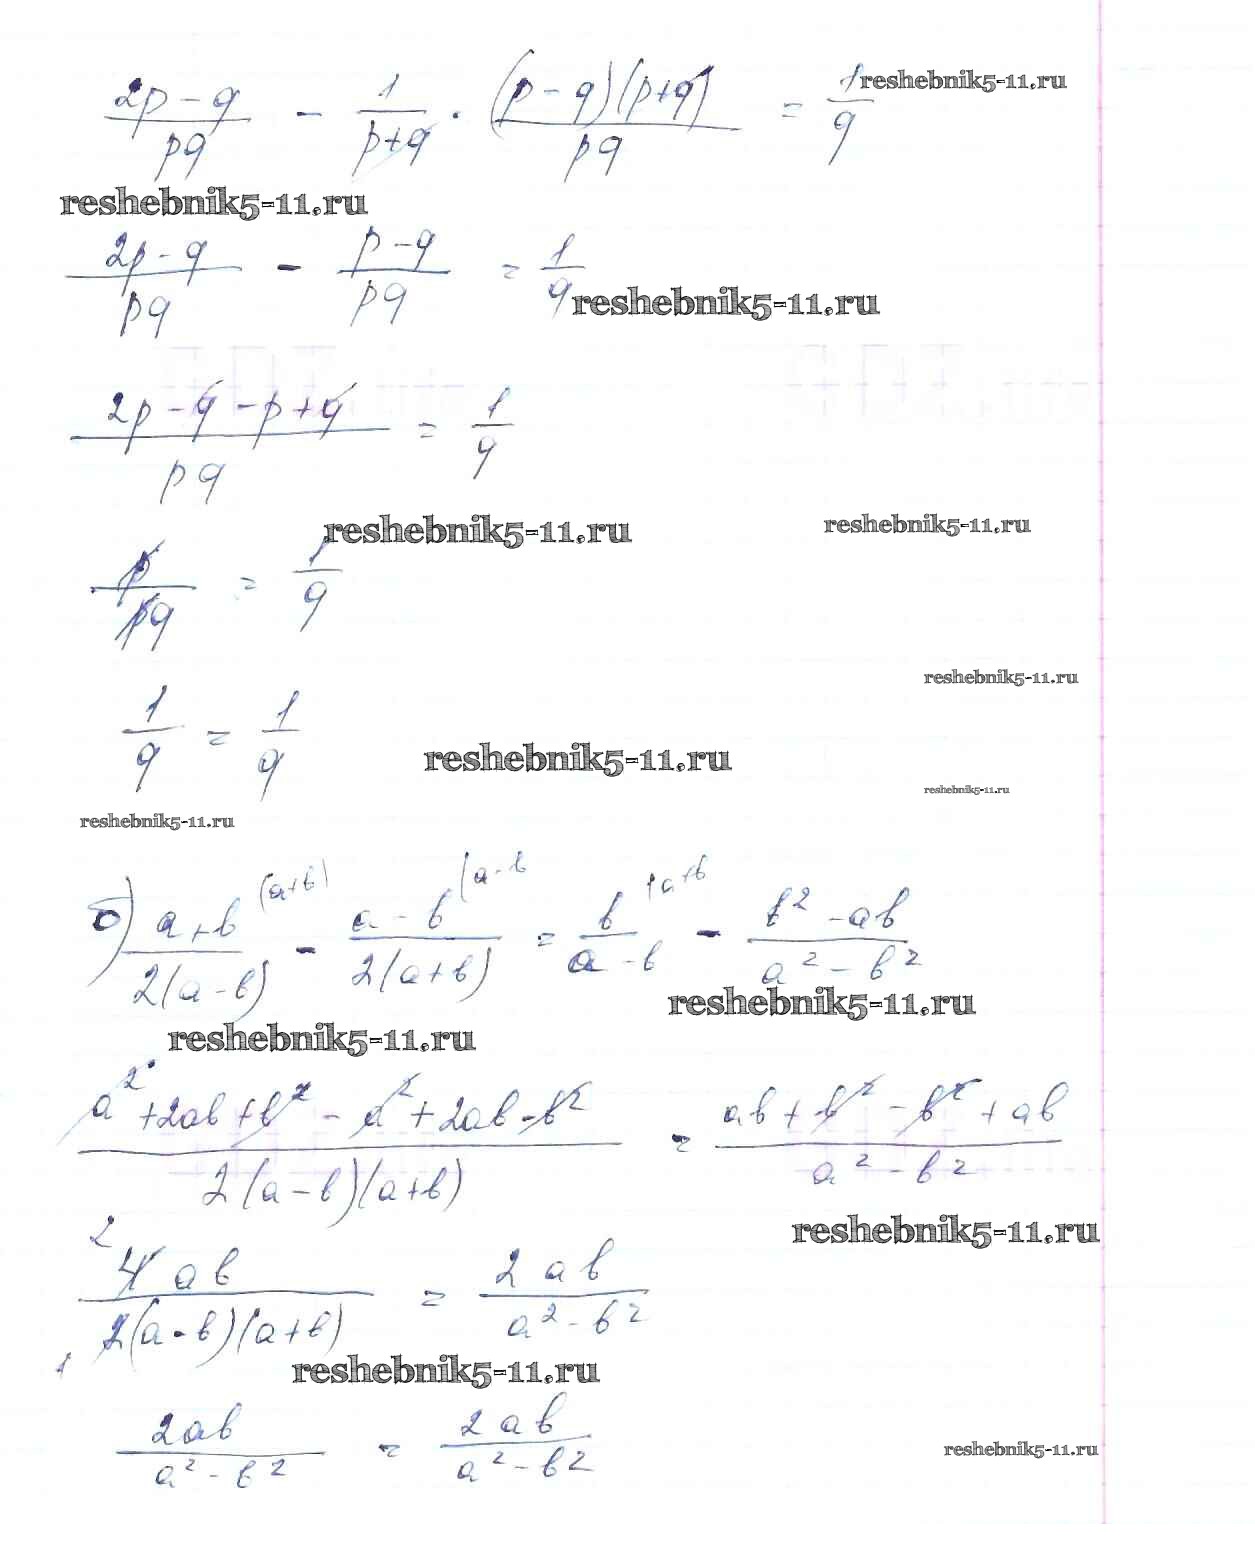 (2p-q)/(pq) - 1/(p+q) · ((p-q)(p+q))/(pq) = 1/q reshebnik5-11.ru
reshebnik5-11.ru
(2p-q)/(pq) - (p-q)/(pq) = 1/q reshebnik5-11.ru
(2p-q-p+q)/(pq) = 1/q
reshebnik5-11.ru reshebnik5-11.ru
p/(pq) = 1/q
reshebnik5-11.ru
1/q = 1/q reshebnik5-11.ru
reshebnik5-11.ru
reshebnik5-11.ru
б) (a+b)/(2(a-b)) (a+b) - (a-b)/(2(a+b)) (a-b = b/(a-b) (a+b - (b²-ab)/(a²-b²)
reshebnik5-11.ru
reshebnik5-11.ru
(a²+2ab+b²-a²+2ab-b²)/(2(a-b)(a+b)) = (ab+b²-b²+ab)/(a²-b²)
reshebnik5-11.ru
2 4ab/(2(a-b)(a+b)) 1 = 2ab/(a²-b²)
reshebnik5-11.ru
2ab/(a²-b²) = 2ab/(a²-b²) reshebnik5-11.ru